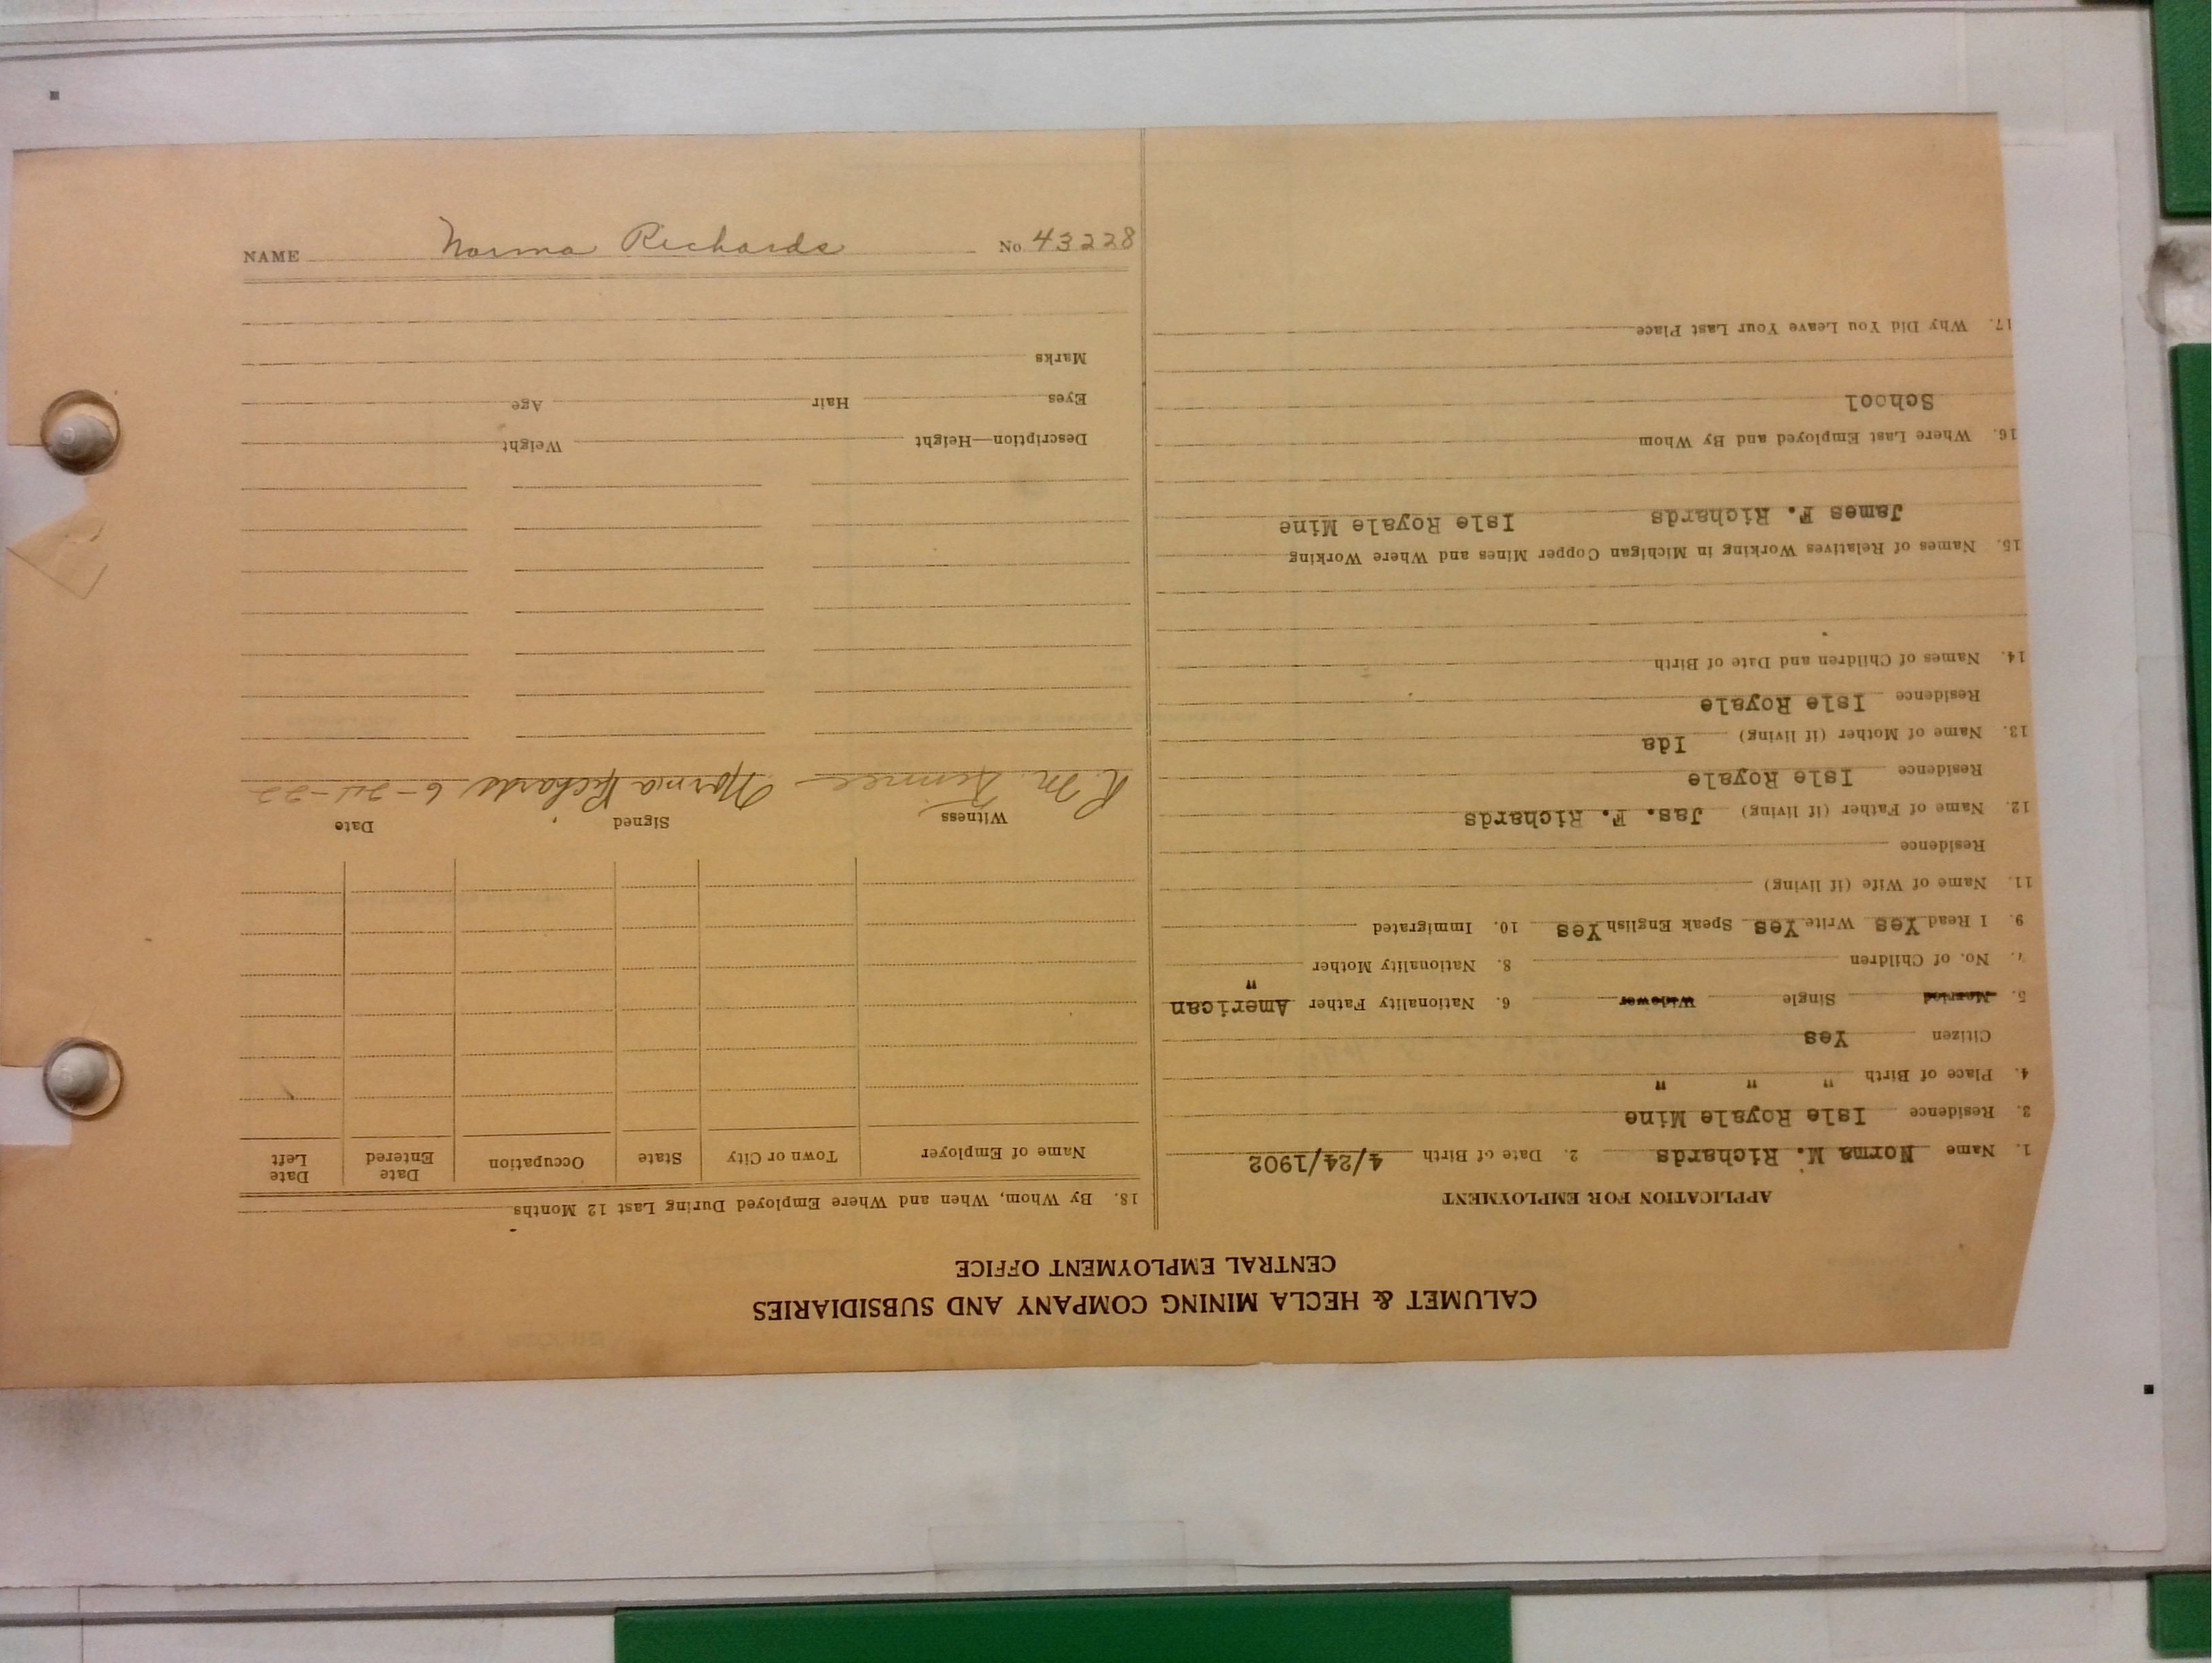 CALUMET & HECLA MINING COMPANY AND SUBSIDIARIES
CENTRAL EMPLOYMENT OFFICE
APPLICATION FOR EMPLOYMENT
1. Name Norma M. Richards 2. Date of Birth 4/24/1902
3. Residence Isle Royale Mine
4. Place of Birth " " "
Citizen Yes
5. Married Single Widower 6. Nationality Father American
7. No. of Children 8. Nationality Mother "
9. I Read Yes Write Yes Speak English Yes 10. Immigrated
11. Name of Wife (if living)
Residence
12. Name of Father (if living) Jas. F. Richards
Residence Isle Royale
13. Name of Mother (if living) Ida
Residence Isle Royale
14. Names of Children and Date of Birth
15. Names of Relatives Working in Michigan Copper Mines and Where Working
James F. Richards Isle Royale Mine
16. Where Last Employed and By Whom
School
17. Why Did You Leave Your Last Place
18. By Whom, When and Where Employed During Last 12 Months
Name of Employer Town or City State Occupation Date Entered Date Left
Witness Signed Date
R. M. Norma Richards 6-24-22
Description—Height Weight
Eyes Hair Age
Marks
NAME Norma Richards No 43228